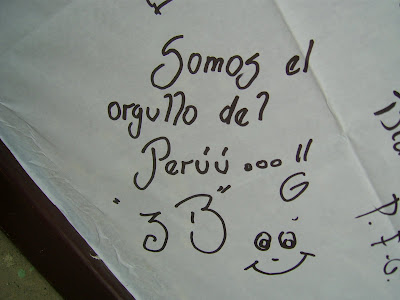 Somos el
orgullo del
Perúú...!!
"3 B"
G
P.F.G.